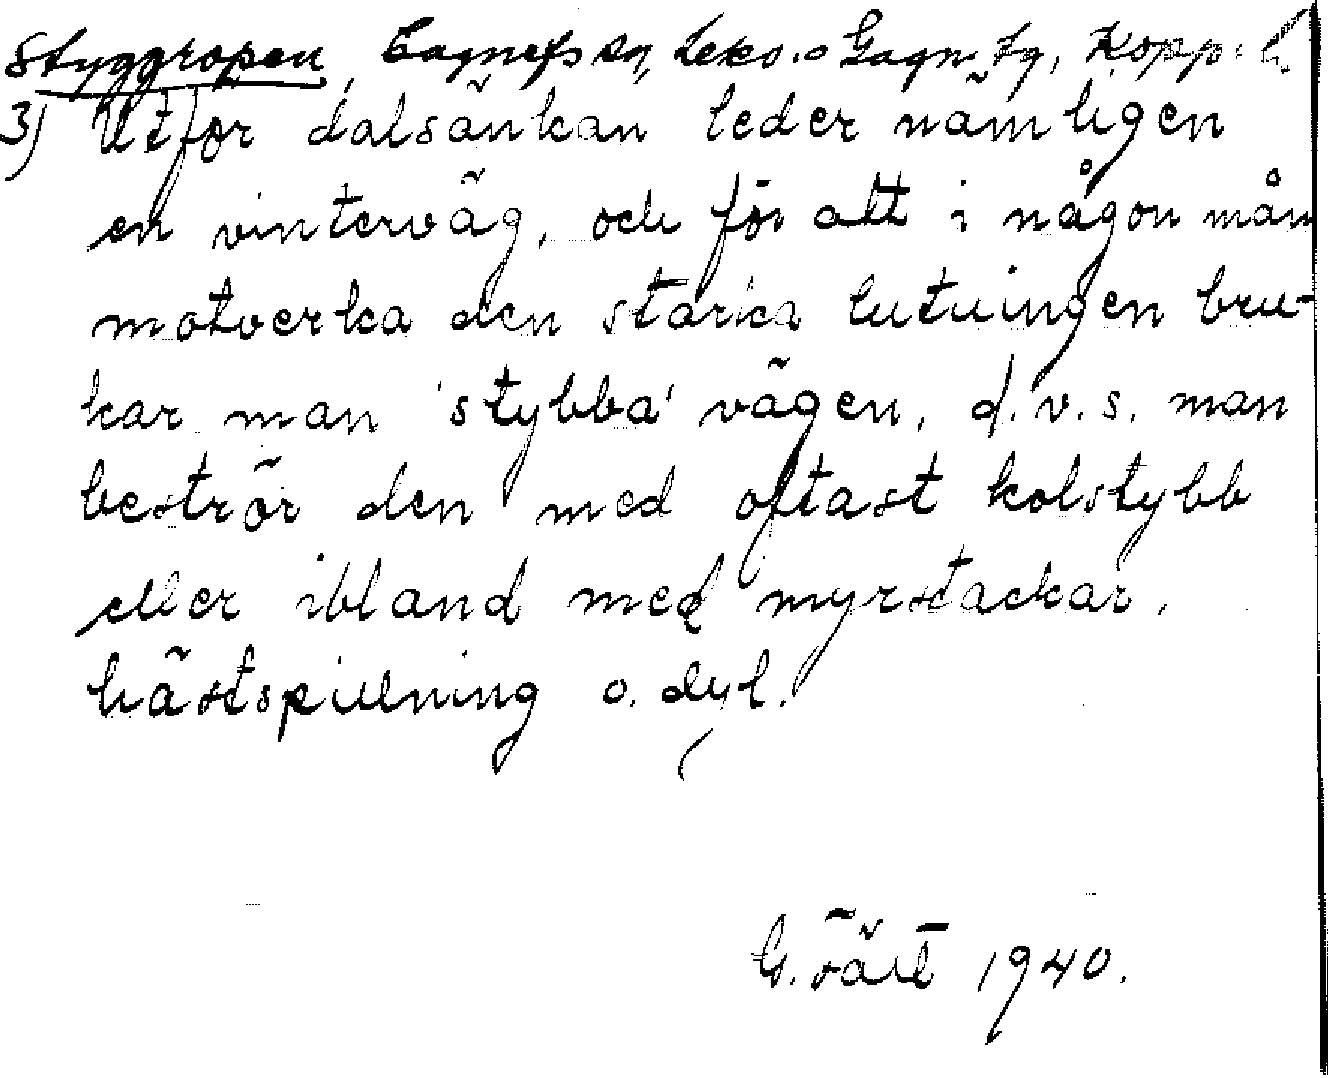 Styggropen, Gagnefs sn, Leks. o Gagn. tg, Kopp. l.
3) Utför dalsänkan leder nämligen
en vinterväg, och för att i någon mån
motverka den starka lutningen bru-
kar man 'stybba' vägen, d.v.s. man
beströr den med oftast kolstybb
eller ibland med myrstackar,
hästspillning o. dyl.
G. 1940.